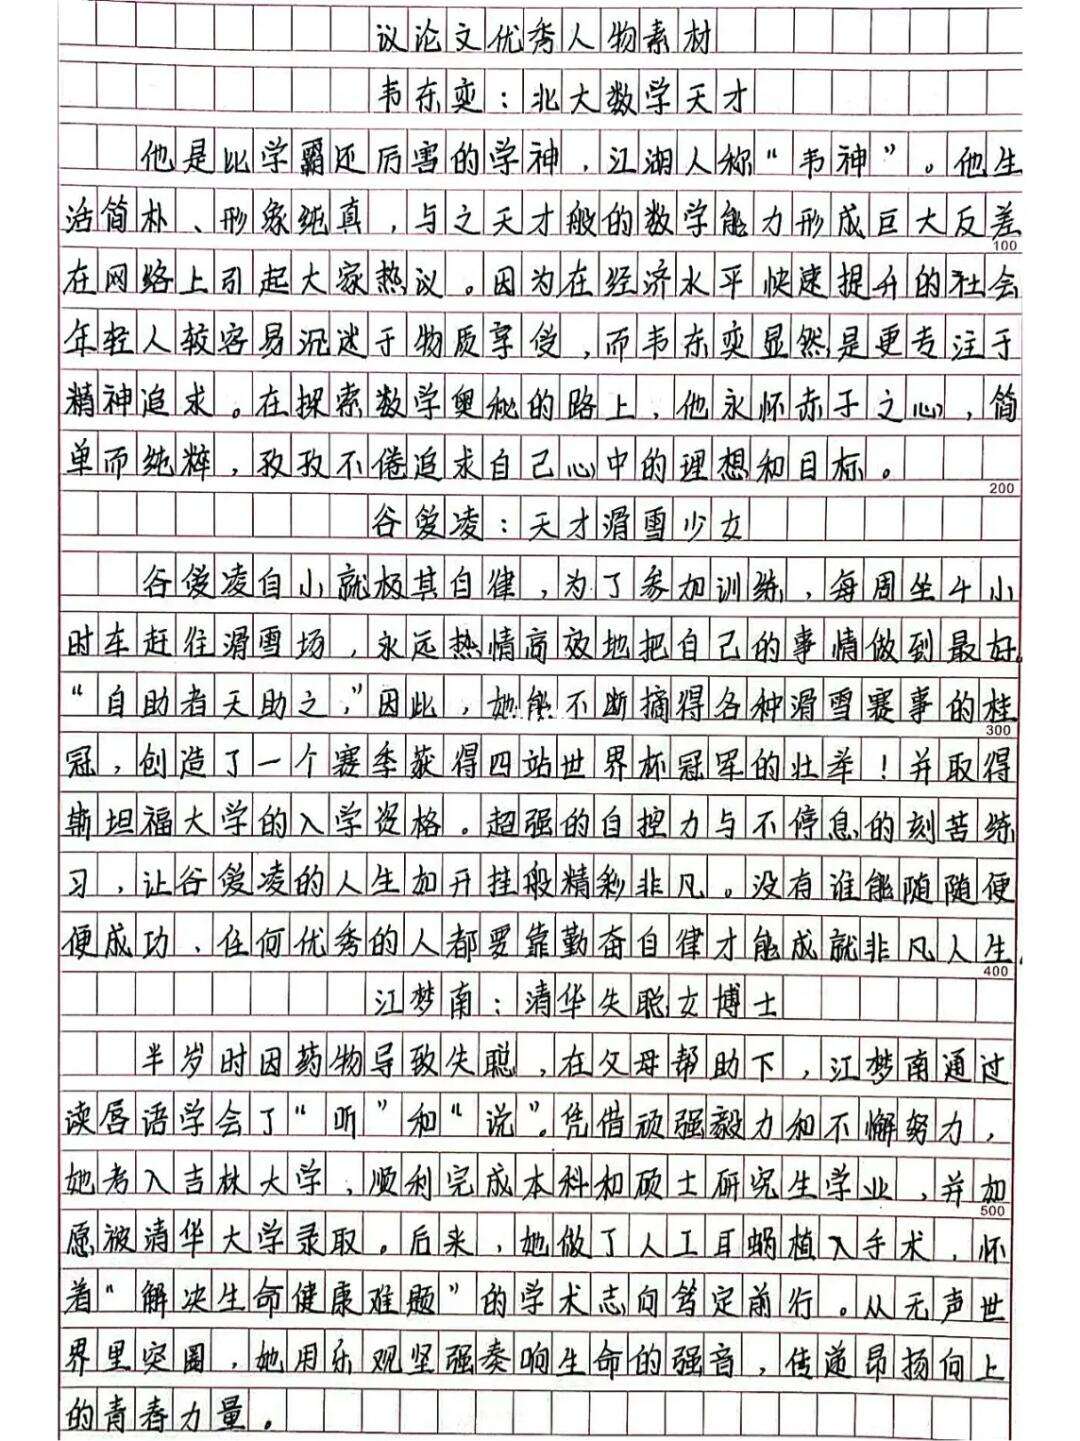 议论文优秀人物素材
韦东奕：北大数学天才
他是比学霸还厉害的学神，江湖人称“韦神”。他生
活简朴、形象纯真，与之天才般的数学能力形成巨大反差
100
在网络上引起大家热议。因为在经济水平快速提升的社会
年轻人较容易沉迷于物质享受，而韦东奕显然是更专注于
精神追求。在探索数学奥秘的路上，他永怀赤子之心，简
单而纯粹，孜孜不倦追求自己心中的理想和目标。
200
谷爱凌：天才滑雪少女
谷爱凌自小就极其自律，为了参加训练，每周坐4小
时车赶往滑雪场，永远热情高效地把自己的事情做到最好。
“自助者天助之，”因此，她能不断摘得各种滑雪赛事的桂
300
冠，创造了一个赛季获得四站世界杯冠军的壮举！并取得
斯坦福大学的入学资格。超强的自控力与不停息的刻苦练
习，让谷爱凌的人生如开挂般精彩非凡。没有谁能随随便
便成功，任何优秀的人都要靠勤奋自律才能成就非凡人生。
400
江梦南：清华失聪女博士
半岁时因药物导致失聪，在父母帮助下，江梦南通过
读唇语学会了“听”和“说”。凭借顽强毅力和不懈努力，
她考入吉林大学，顺利完成本科和硕士研究生学业，并如
500
愿被清华大学录取。后来，她做了人工耳蜗植入手术，怀
着“解决生命健康难题”的学术志向笃定前行。从无声世
界里突围，她用乐观坚强奏响生命的强音，传递昂扬向上
的青春力量。